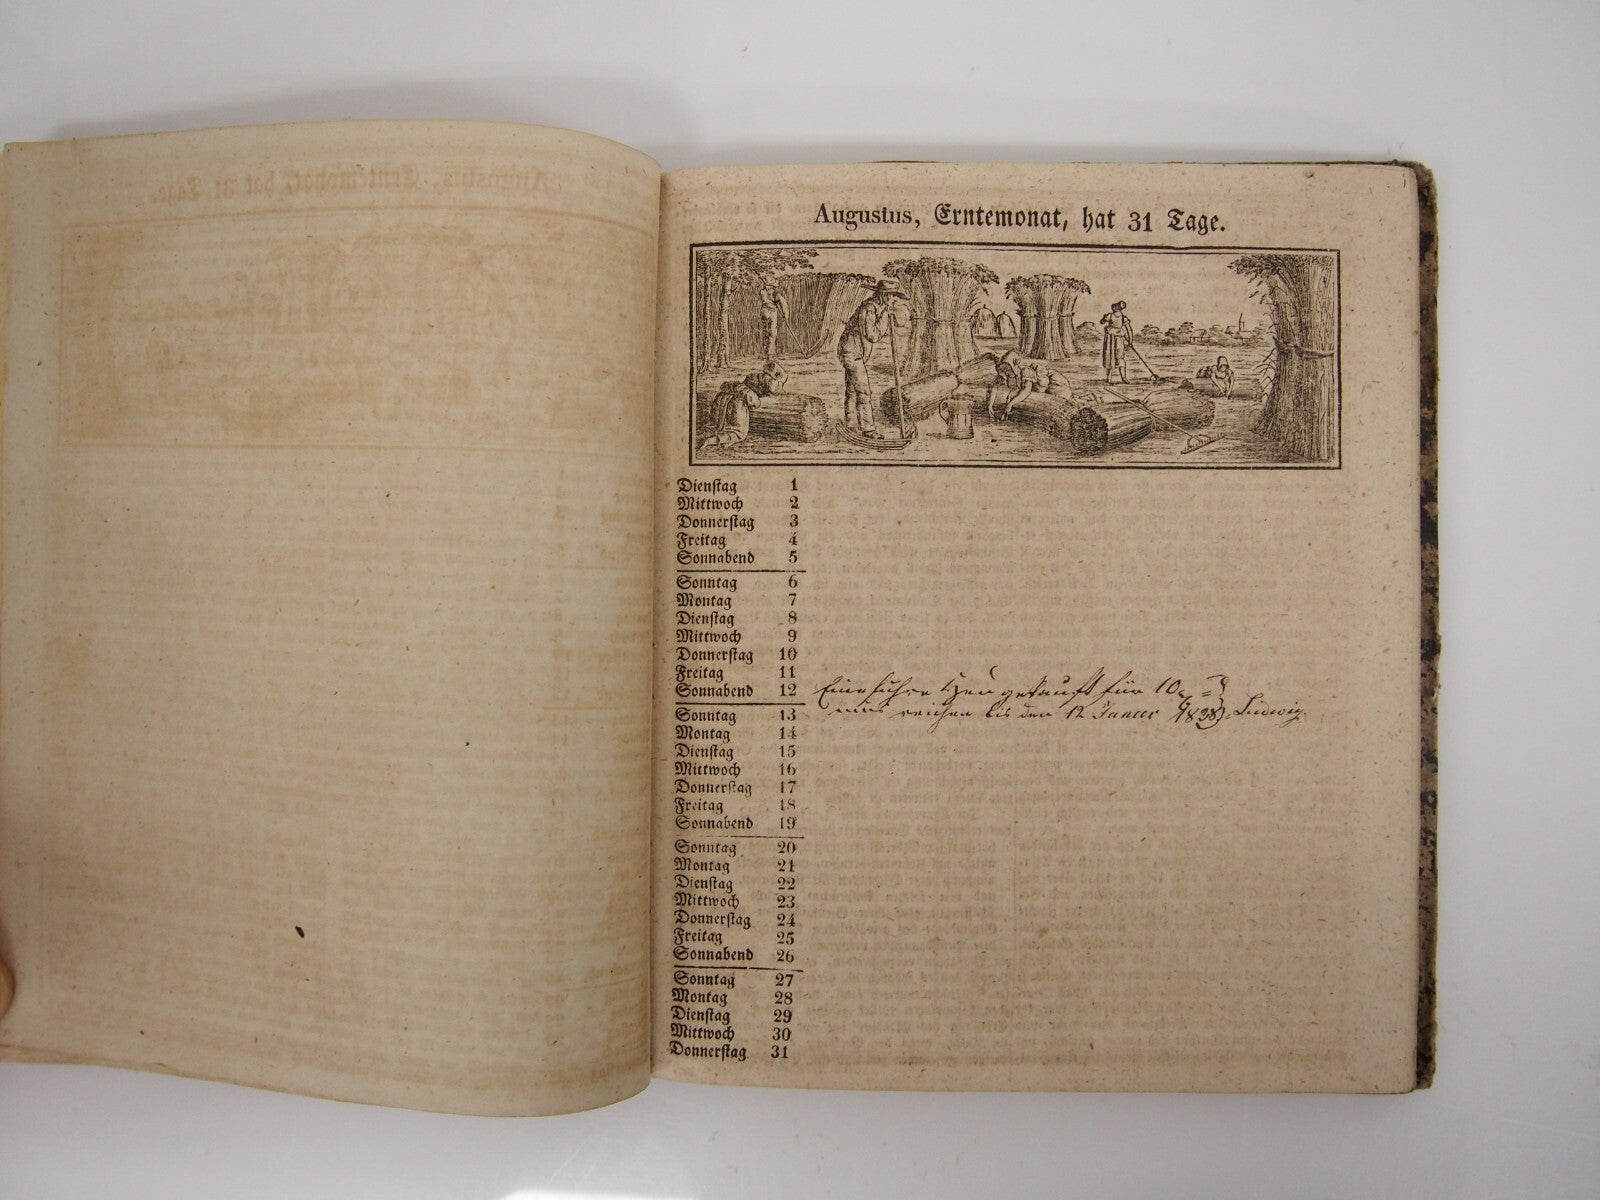 Augustus, Erntemonat, hat 31 Tage.
Dienstag 1
Mittwoch 2
Donnerstag 3
Freitag 4
Sonnabend 5
Sonntag 6
Montag 7
Dienstag 8
Mittwoch 9
Donnerstag 10
Freitag 11
Sonnabend 12 Eine fuhre Heu gekauft für 10
muß reichen bis den 12 Januar 1838. Ludwig.
Sonntag 13
Montag 14
Dienstag 15
Mittwoch 16
Donnerstag 17
Freitag 18
Sonnabend 19
Sonntag 20
Montag 21
Dienstag 22
Mittwoch 23
Donnerstag 24
Freitag 25
Sonnabend 26
Sonntag 27
Montag 28
Dienstag 29
Mittwoch 30
Donnerstag 31